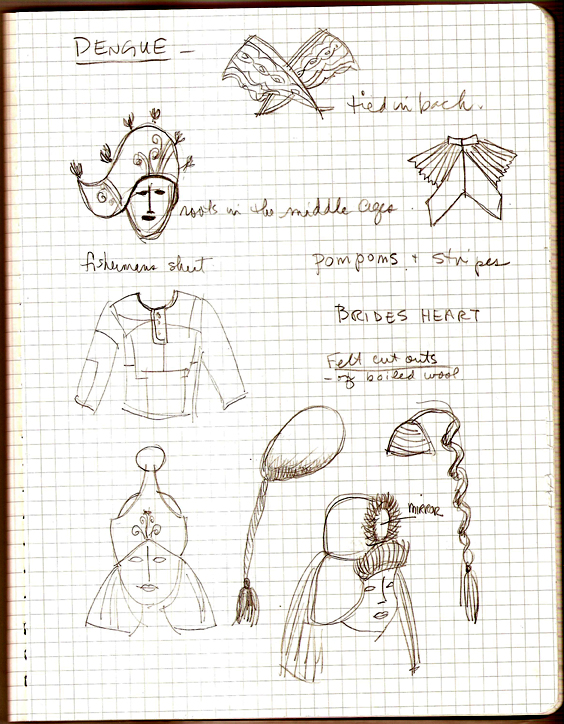 DENGUE -
tied in back.
roots in the middle ages
fishermens shirt
pompoms + stripes
BRIDES HEART
Felt cut outs
- of boiled wool
MIRROR